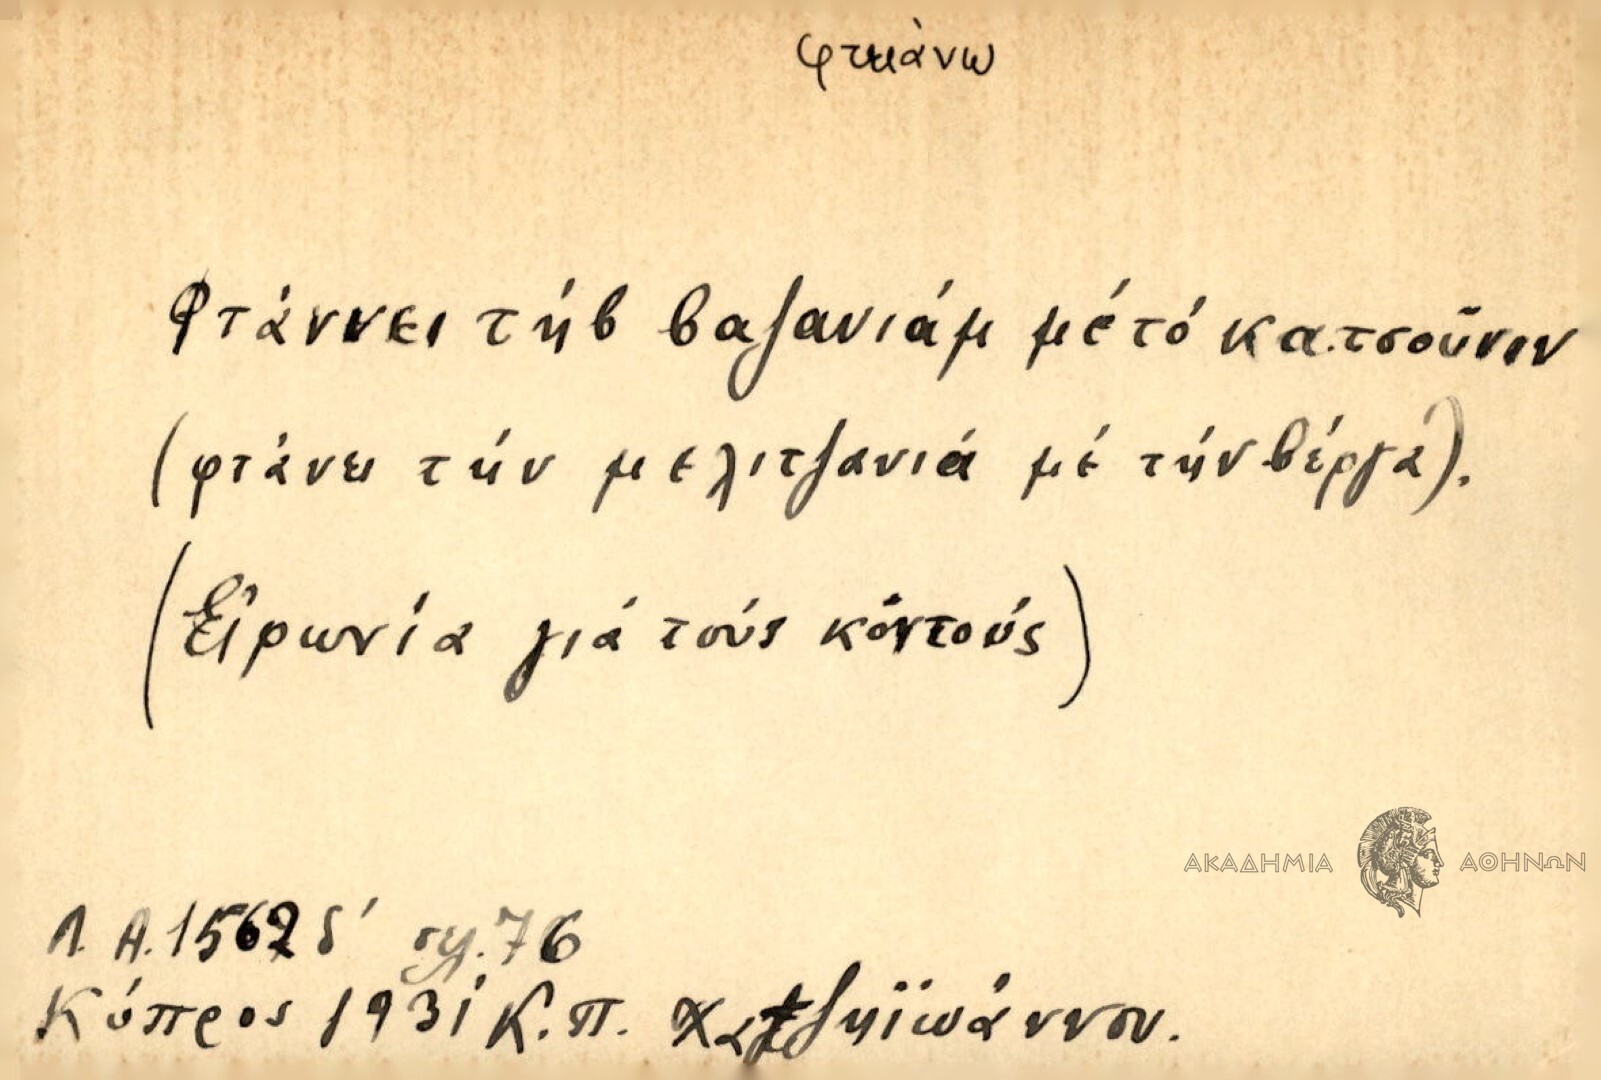 φτάνω
Φτάννει τήβ βαζανιάμ μέ τό κατσοῦνιν
(φτάνει τήν μελιτζανιά μέ τήν βέργα).
(Εἰρωνία γιά τούς κόντούς)
ΑΚΑΔΗΜΙΑ ΑΘΗΝΩΝ
Λ.Α. 1562 δ' σελ. 76
Κύπρος 1931 Κ.Π. Χατζηϊωάννου.